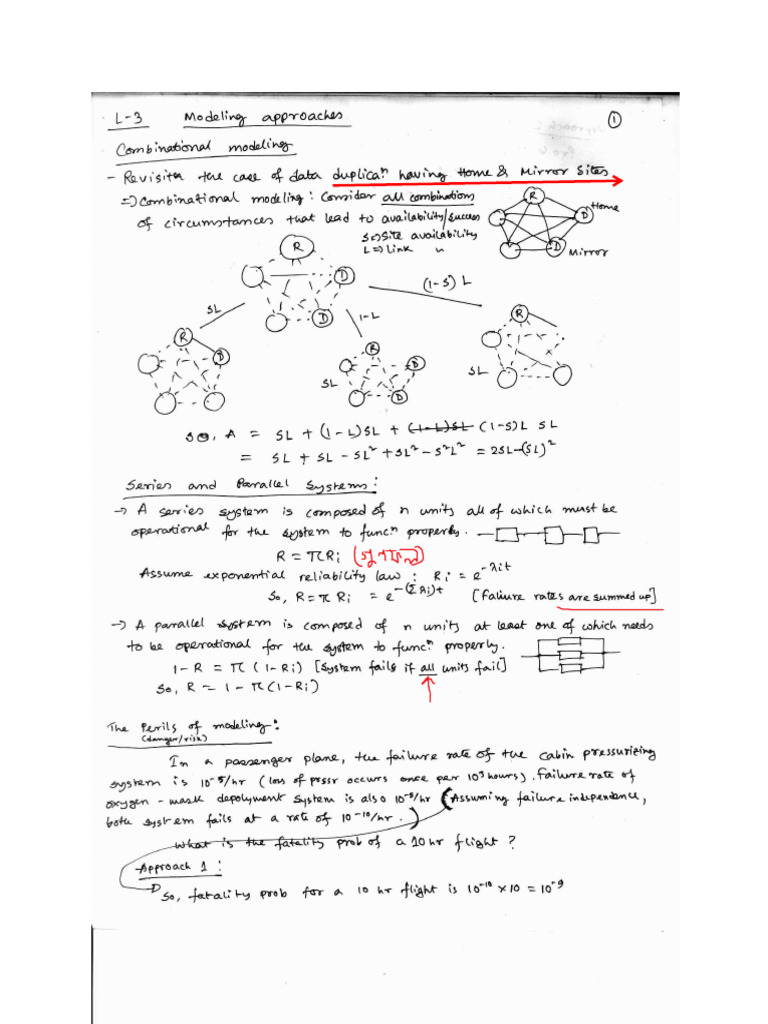 L-3 Modeling approaches ①
Combinational modeling
- Revisitn the case of data duplicaⁿ having Home & Mirror Sites
=> Combinational modeling: Consider all combinations
of circumstances that lead to availability/success
S => Site availability
L => link "
R
D Home
D Mirror
R
D
D
SL
1-L
(1-S) L
R
D
SL
R
D
D
SL
R
SO, A = SL + (1-L)SL + (1-L)SL (1-S)L SL
= SL + SL - SL² + SL² - S²L² = 2SL-(SL)²
Series and Parallel Systems:
-> A series system is composed of n units all of which must be
operational for the system to funcⁿ properly.
R = πRi (গুণফল)
Assume exponential reliability law: Ri = e^-λit
So, R = π Ri = e^-(Σλi)t [Failure rates are summed up]
-> A parallel system is composed of n units at least one of which needs
to be operational for the system to funcⁿ properly.
1-R = π(1-Ri) [System fails if all units fail]
So, R = 1-π(1-Ri)
The Perils of modeling:
(danger/risk)
In a passenger plane, the failure rate of the cabin pressurizing
system is 10⁻⁵/hr (loss of pressr occurs once per 10⁵ hours). Failure rate of
oxygen-mask depolyment system is also 10⁻⁵/hr (Assuming failure independence,
both system fails at a rate of 10⁻¹⁰/hr.)
What is the fatality prob of a 10 hr flight?
Approach 1:
So, fatality prob for a 10 hr flight is 10⁻¹⁰ × 10 = 10⁻⁹